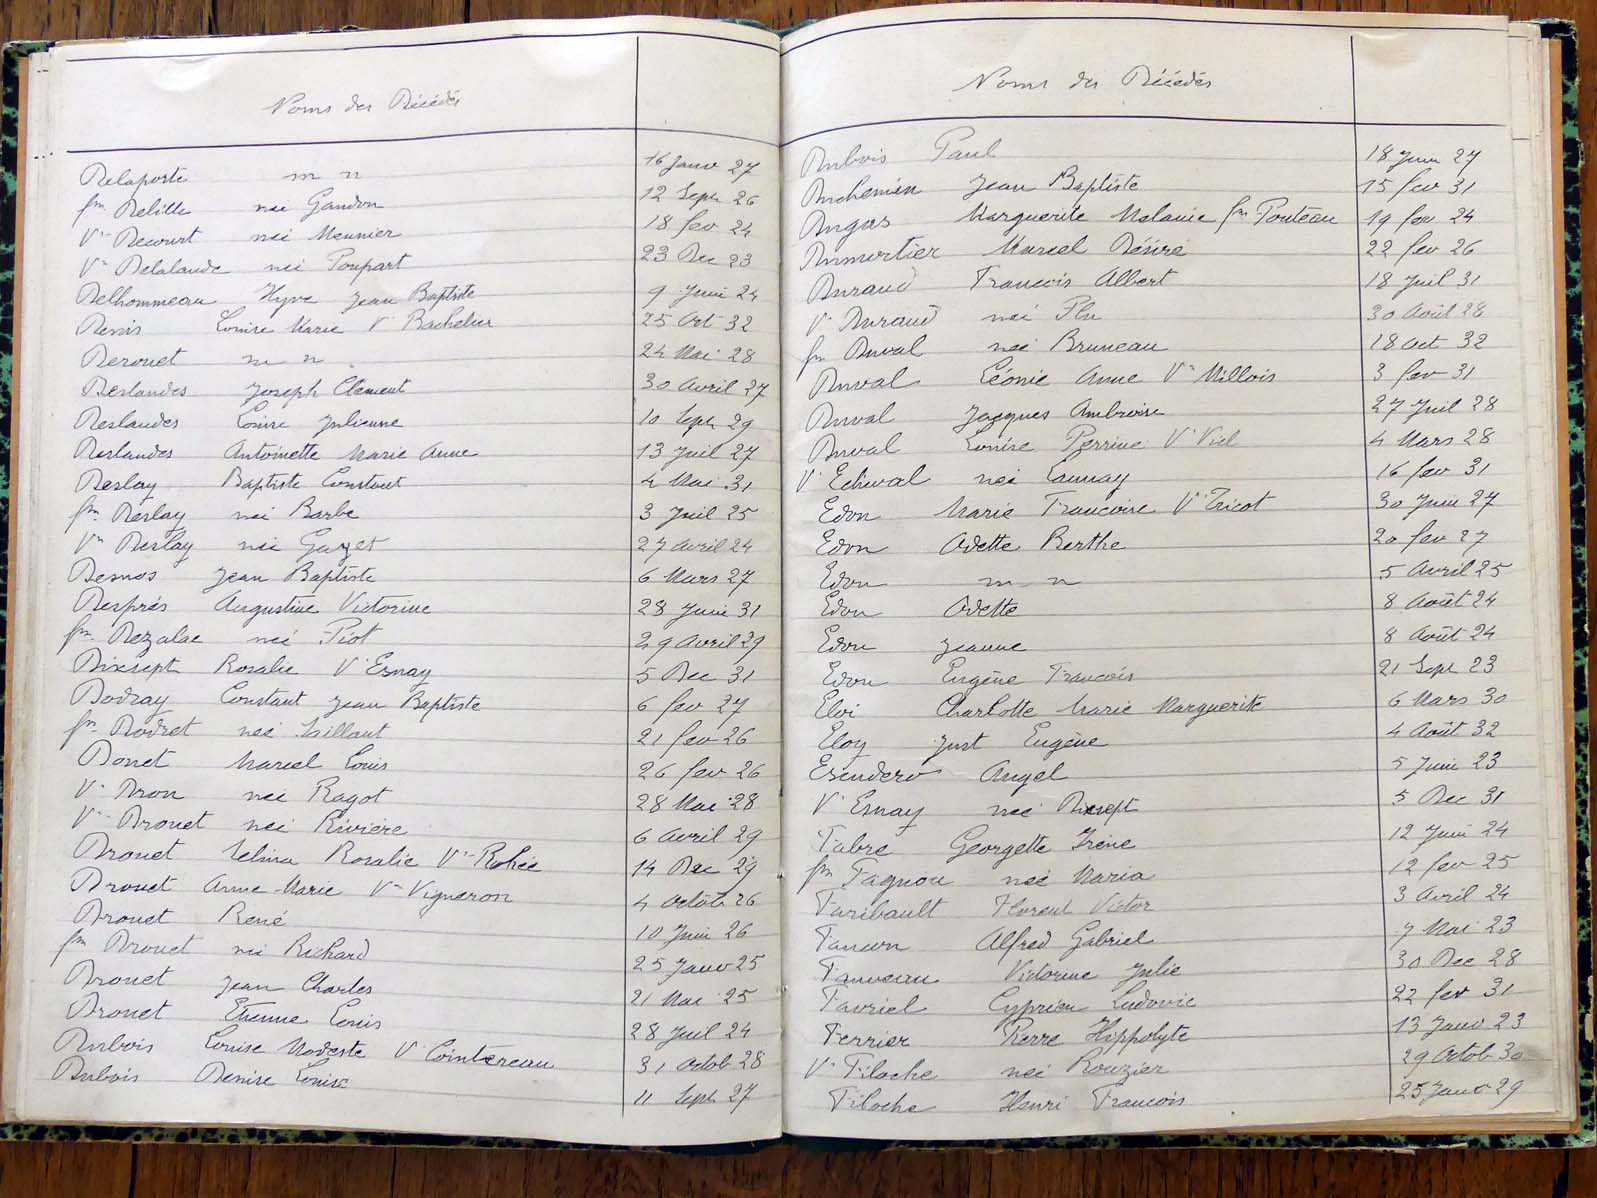 Noms des Décédés
Delaporte m n 16 Janv 27
fm Delille née Gandon 12 Sept 26
Ve Decourt née Meunier 18 fev 24
Ve Delalande née Poupart 23 Dec 23
Delhommeau Hyve Jean Baptiste 9 Juin 24
Denis Louise Marie Ve Bachelier 25 Oct 32
Derouet m n 24 Mai 28
Deslandes Joseph Clement 30 Avril 27
Deslandes Louise Julienne 10 Sept 29
Deslandes Antoinette Marie Anne 13 Juil 27
Deslay Baptiste Constant 4 Mai 31
fm Deslay née Barbe 3 Juil 25
Ve Deslay née Gazet 27 avril 24
Desnos Jean Baptiste 6 Mars 27
Després Augustine Victorine 28 Juin 31
fm Dezalae née Piot 29 avril 29
Dixsept Rosalie Ve Esnay 5 Dec 31
Dodray Constant Jean Baptiste 6 fev 27
fm Dodret née Vaillant 21 fev 26
Donet Marcel Louis 26 fev 26
Ve Dron née Ragot 28 Mai 28
Ve Drouet née Rivière 6 avril 29
Drouet Zelina Rosalie Ve Rohée 14 Dec 29
Drouet Anne-Marie Ve Vigneron 4 octob 26
Drouet René 10 Juin 26
fm Drouet née Richard 25 Janv 25
Drouet Jean Charles 21 Mai 25
Drouet Etienne Louis 28 Juil 24
Dubois Louise Modeste Ve Cointereau 31 octob 28
Dubois Denise Louise 11 Sept 27
Noms des Décédés
Dubois Paul 18 Juin 27
Duchemin Jean Baptiste 15 fev 31
Dugas Marguerite Melanie fm Pouteau 19 fev 24
Dumortier Marcel Désiré 22 fev 26
Durand Francois Albert 18 Juil 31
Ve Durand née Flu 30 Août 28
fm Duval née Bruneau 18 oct 32
Duval Léonie Anne Ve Millois 3 fev 31
Duval Jacques Ambroise 27 Juil 28
Duval Louise Perrine Ve Viel 4 Mars 28
Ve Echival née Launay 16 fev 31
Edon Marie Francoise Ve Tricot 30 Juin 27
Edon Odette Berthe 20 fev 27
Edon m n 5 Avril 25
Edon Odette 8 Août 24
Edon Jeanne 8 Août 24
Edon Eugène Francois 21 Sept 23
Eloi Charlotte Marie Marguerite 6 Mars 30
Eloy Just Eugène 4 Août 32
Escudero Angel 5 Juin 23
Ve Esnay née Dixsept 5 Dec 31
Fabre Georgette Irène 12 Juin 24
fm Fagnou née Maria 12 fev 25
Faribault Florent Victor 3 Avril 24
Faucon Alfred Gabriel 7 Mai 23
Fauveau Victorine Julie 30 Dec 28
Favriel Cyprien Ludovic 22 fev 31
Ferrier Pierre Hippolyte 13 Janv 23
Ve Filoche née Rouzier 29 Octob 30
Filoche Henri Francois 25 Janv 29